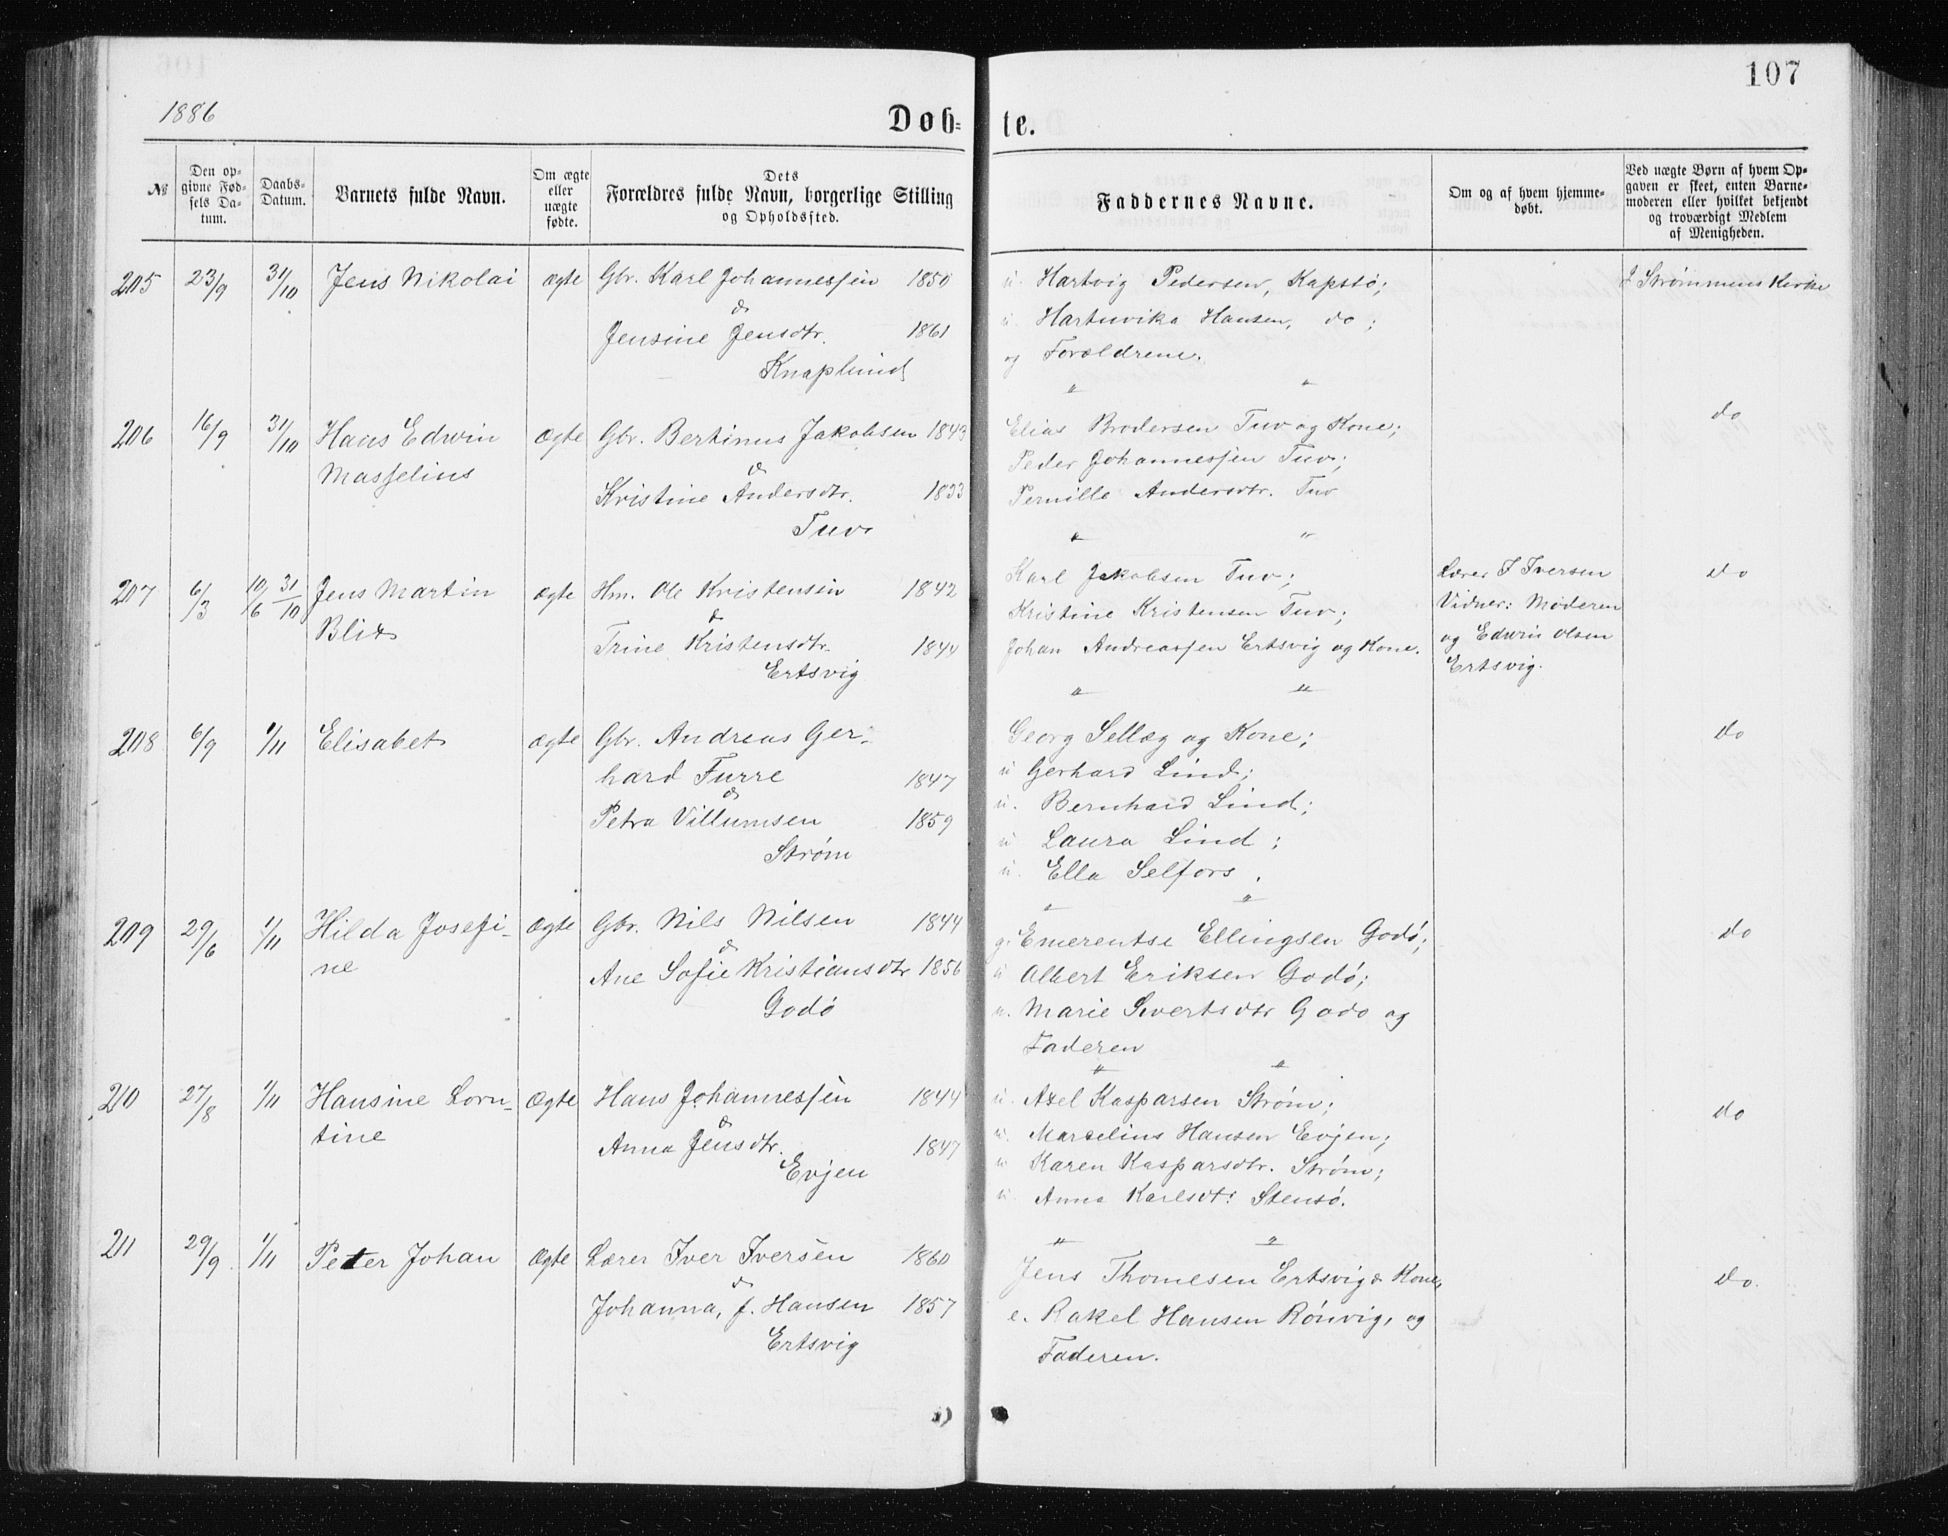 107
1886
Døb=
te.
№
Den op-
givne Fød-
sels Da-
tum.
Daabs-
Datum.
Barnets fulde Navn.
Om ægte
eller
uægte
fødte.
Dets
Forældres fulde Navn, borgerlige Stilling
og Opholdssted.
Faddernes Navne.
Om og af hvem hjemme-
døbt.
Ved uægte Børn af hvem Op-
gaven er skeet, enten Barne-
moderen eller hvilket bekjendt
og troværdigt Medlem
af Menigheden.
205 23/9 31/10 Jens Nikolai ægte Gbr. Karl Johannessen 1850
&
Jensine Jensdtr. 1861
Knaplund
u. Hartvig Pedersen, Kapstø;
u. Hartuvika Hansen, do;
og Forældrene.
" "
I Strømmens Kirke
206 16/9 31/10 Hans Edwin ægte Gbr. Bertinus Jakobsen 1843
Masselius
&
Kristine Andersdtr. 1833
Tuv
Elias Brodersen Tuv og Kone;
Peder Johannessen Tuv;
Pernille Andersdtr. Tuv
" "
do
207 6/3 10/6 31/10 Jens Martin ægte Hm. Ole Kristensen 1842
Blix
&
Trine Kristensdtr. 1844
Ertsvig
Karl Jakobsen Tuv;
Kristine Kristensen Tuv;
Johan Andreassen Ertsvig og Kone.
" "
Lærer I Iversen
Vidner: Moderen
og Edwin Olsen
Ertsvig.
do
208 6/9 1/11 Elisabet ægte Gbr. Andreas Ger-
hard Furre 1847
&
Petra Villumsen 1859
Strøm
Georg Sellæg og Kone;
u Gerhard Lind;
u. Bernhard Lind;
u Laura Lind;
u. Ella Selfors.
" "
do
209 29/6 1/11 Hilda Josefi- ægte Gbr. Nils Nilsen 1844
ne
&
Ane Sofie Kristiansdtr 1856
Godø
g. Emerentse Ellingsen Godø;
u Albert Eriksen Godø;
u. Marie Sivertsdtr Godø og
Faderen
" "
do
210 27/8 1/11 Hansine Lorn- ægte Hans Johannessen 1844
tine
&
Anna Jensdtr. 1847
Evjen
u. Axel Kasparsen Strøm;
u. Marselius Hansen Evjen;
u Karen Kasparsdtr. Strøm;
u. Anna Karlsdt: Stensø.
" "
do
211 29/9. 1/11 Peter Johan ægte Lærer Iver Iversen 1860
&
Johanna, f. Hansen 1857
Ertsvig
Jens Thomesen Ertsvig & Kone,
e. Rakel Hansen Rønvig, og
Faderen.
do.